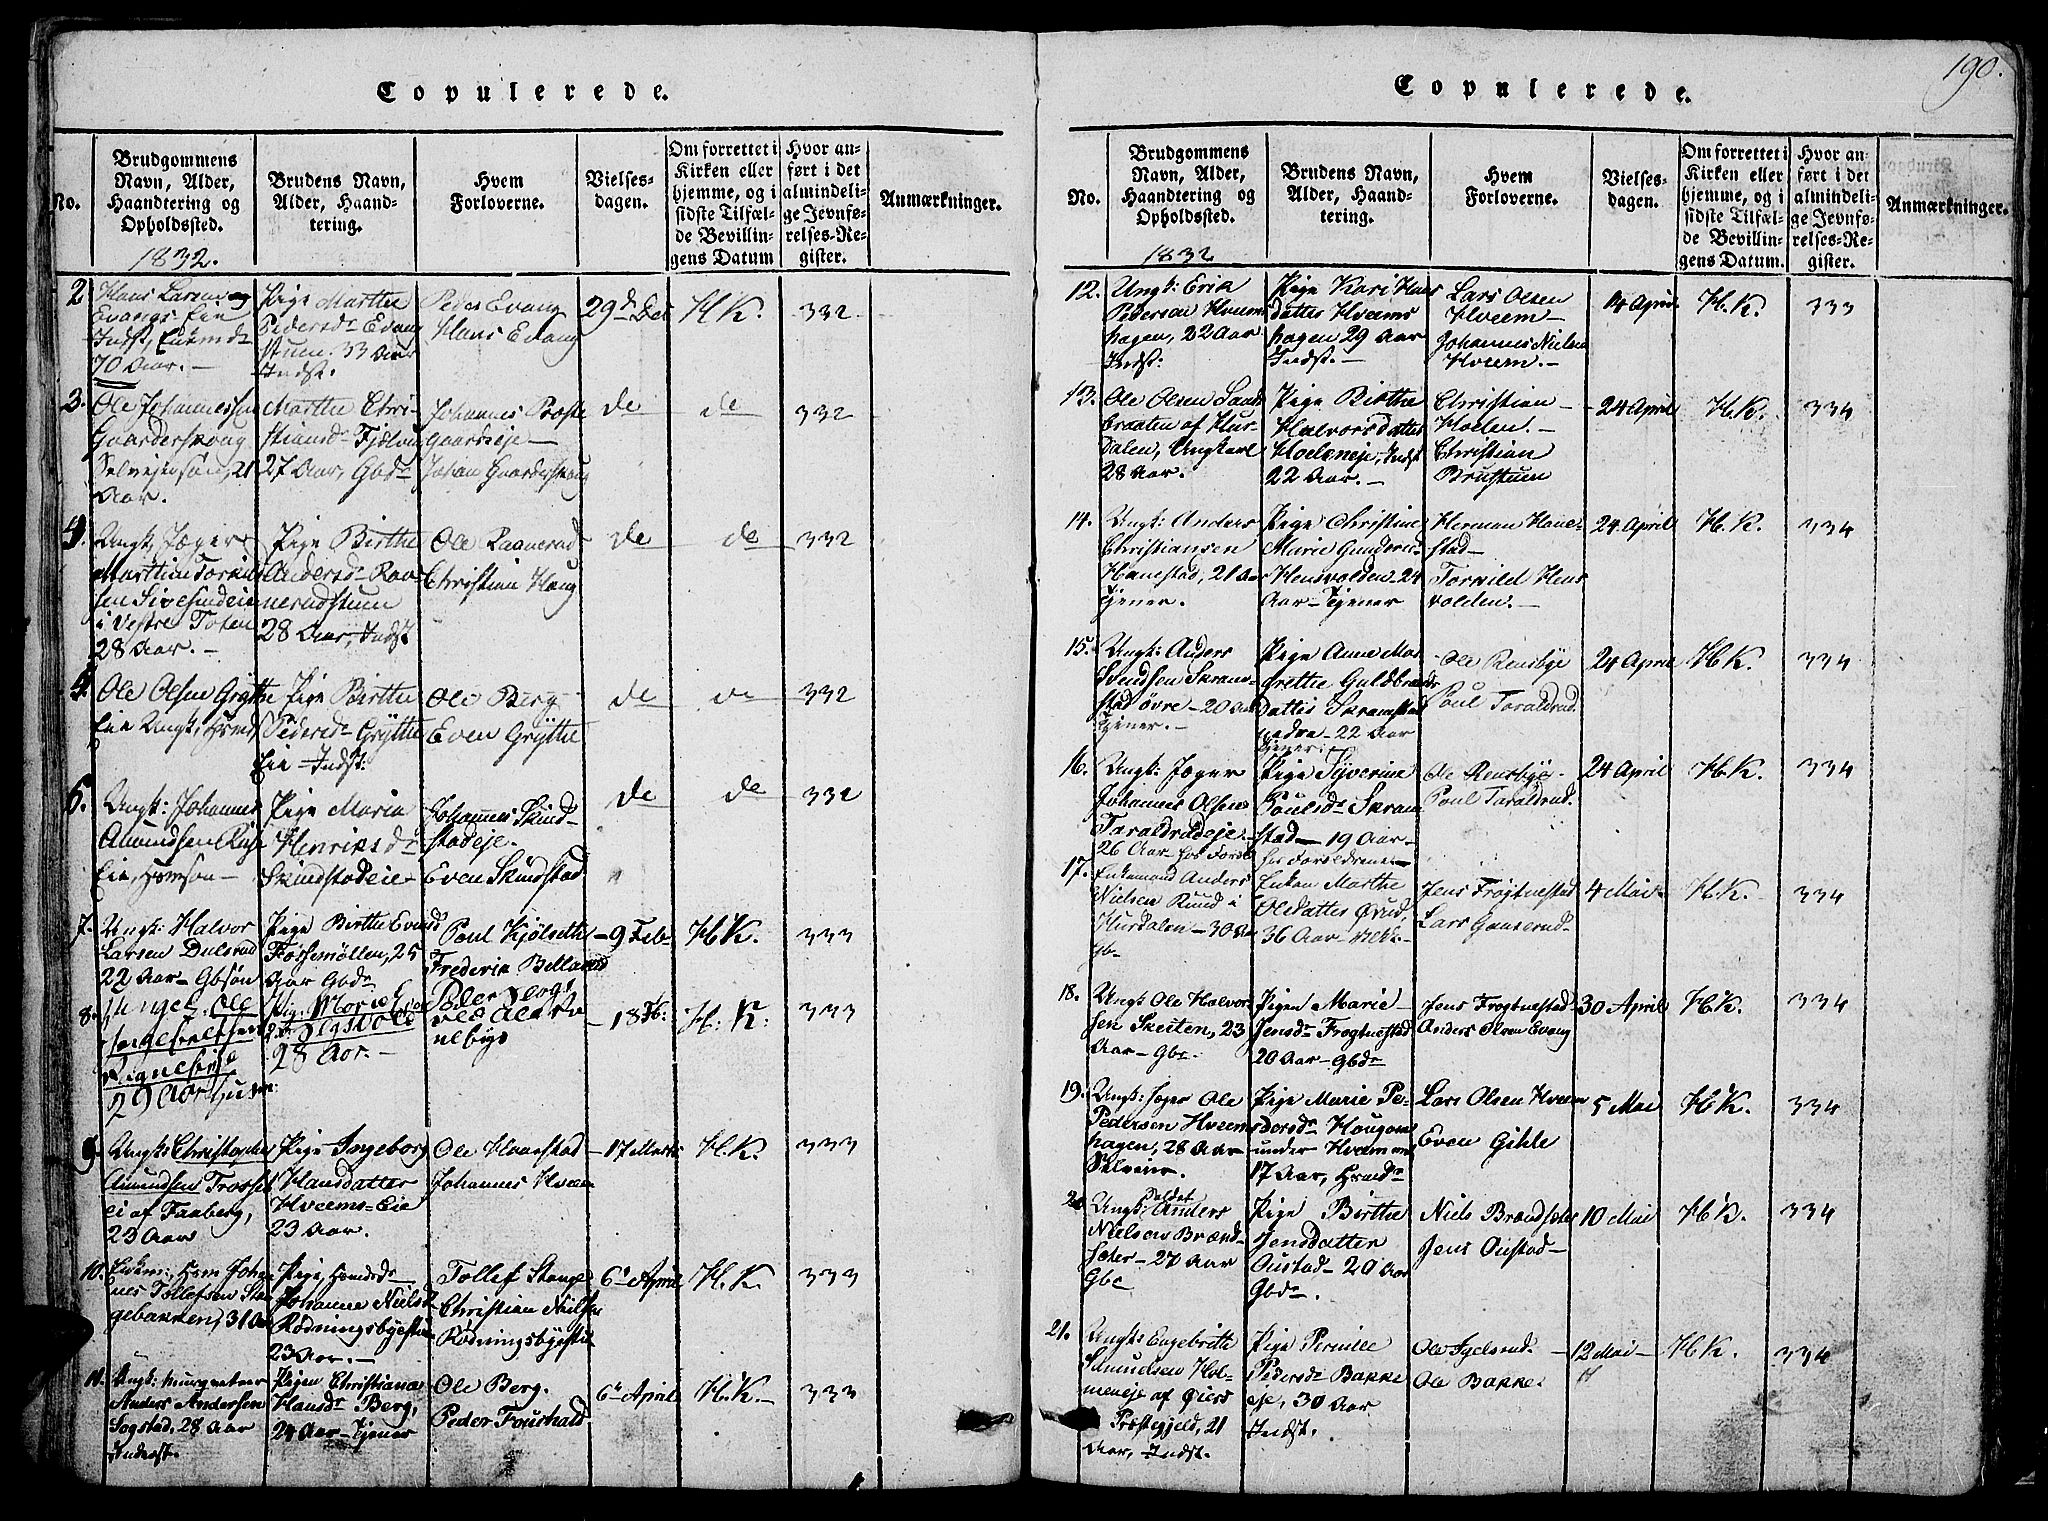 Copulerede.
No.
Brudgommens
Navn, Alder,
Haandtering og
Opholdssted.
1832.
Brudens Navn,
Alder, Haand-
tering.
Hvem
Forloverne.
Vielses-
dagen.
Om forrettet i
Kirken eller
hjemme, og i
sidste Tilfæl-
de Bevillin-
gens Datum
Hvor an-
ført i det
almindeli-
ge Jevnfø-
relses-Re-
gister.
Anmærkninger.
2
Hans Larsen
Evangs Eie
Indst, Enkemd
70 Aar.
Pige Marthe
Pedersdr Evang
stuen. 33 Aar
Indst.
Peder Evang
Hans Evang
29d Dec
H.K.
332
3.
Ole Johannessen
Gaarderhaug
21
Aar.
Marthe Chri-
stiansdr
27 Aar, Gbdr
Johannes Præste
gaardseje
Johan Gaarderhaug
de
de
332
4.
Ungk. Jæger
Marthin Torkil
sen
i Vestre Toten
28 Aar.
Pige Birthe
Andersdr Rav-
nerudstuen
28 Aar, Indst
Ole Ravnerud
Christian Haug
de
de
332
5.
Ole Olsen Grytte
Eie Ungk.
Pige Birthe
Pedersdr Grytte
Eie Indst:
Ole Berg
Even Grytte
de
de
332
6.
Ungk: Johannes
Amundsen
Eie, Hsmsøn
Pige Maria
Henriksdr
Skindstadeie
Johannes Skind-
stadeje.
Even Skindstad
de
de
332
7.
Ungk: Halvor
Larsen Dulsrud
22 Aar Gbsøn
Pige Birthe Evensd
Fossemøllen, 25
Aar Gbdr
Poul Kjølseth
Frederik Billerud
9 Feb
H.K.
333
8.
Ungk. Ole
29 Aar
Pig: Marie
28 Aar.
Peder
18 Fb.
H: K:
333
9
Ungk: Christopher
Amundsen Trosset
ei af Faaberg,
23 Aar
Pige Ingeborg
Hansdatter
Hveems Eie
23 Aar.
Ole Haarstad
Johannes Hveem
17 Marts
H.K.
333
10.
Enkem: Hsm Johan
nes Tollefsen Stan
gebakken, 31 Aar
Pige, Hsmdsdr
Johanne Nielsd
Rødningsbyestuen
23 Aar.
Tollef Stange
Christian Nielsen
Rødningsbyestuen
6' April
H.K.
333
11.
Ungk:
Anders Andersen
Sogstad, 28 Aar
Inderst.
Pigen Christiane
Hansdr Berg,
24 Aar Tjener
Ole Berg.
Peder Fourhald
6' April
H.K.
333
Copulerede.
190.
No.
Brudgommens
Navn, Alder,
Haandtering og
Opholdssted.
1832
Brudens Navn,
Alder, Haand-
tering.
Hvem
Forloverne.
Vielses-
dagen.
Om forrettet i
Kirken eller
hjemme, og i
sidste Tilfæl-
de Bevillin-
gens Datum.
Hvor an-
ført i det
almindeli-
ge Jevnfø-
relses-Re-
gister.
Anmærkninger.
12.
Ungk: Erik
Pedersen Hveem
hagen, 22 Aar
Indst:
Pige Kari Hans
datter Hveems
hagen 29 Aar
Indst.
Lars Olsen
Hveem
Johannes Nielsen
Hveem.
14 April
H.K.
333
13.
Ole Olsen Sand
braaten af Hur
dalen, Ungkarl
28 Aar.
Pige Birthe
Halvorsdatter
Hoelseneje, Indst
22 Aar.
Christian
Hoelen.
Christian
Brustuen
24 April
H.K.
334
14.
Ungk: Anders
Christiansen
Hanestad, 21 Aar
Tjener.
Pige Christine
Marie Gundersd
Hensvolden 24
Aar Tjener
Herman Hane-
stad
Torvild Hens
volden.
24 April
H.K.
334
15.
Ungk: Anders
Svendsen Skram-
stad øvre 20 Aar
Tjener.
Pige Anne Mar
grethe Guldbrands
datter Skramstad
nedre 22 Aar
Tjener.
Ole Rensbye
Poul Taraldrud
24 April
H.K.
334
16.
Ungk: Jæger
Johannes Olsen
Taraldrudeje
26 Aar hos Foræld
Pige Syverine
Poulsdr Skram
stad 19 Aar
hos Forældrene
Ole Rensbye
Poul Taraldrud
24 April
H.K.
334
17.
Enkemand Anders
Nielsen Ruud i
Hurdalen 30 Aar
Gb
Enken Marthe
Olsdatter Ørud,
36 Aar
Jens Frøgtnestad
Lars Gaukerud
4 Mai
H.K.
334
18.
Ungk Ole Halvor
sen Skisten, 23
Aar Gb.
Pigen Marie
Jensdr Frogtnestad
20 Aar Gbdr
Jens Frogtnestad
Anders Olsen Evang
30 April
H.K.
334
19.
Ungk: Jæger Ole
Pedersen Hveems
hagen, 28 Aar
Selveier.
Pige Marie Pe-
dersdr Haugom
under Hveem
17 Aar, Hsmdr
Lars Olsen Hveem
Even Gihle
5 Mai
H.K.
334
20
Ungk: Soldat Anders
Nielsen Brænd-
sæter 27 Aar
Gbe
Pige Birthe
Jensdatter
Oustad 20 Aar
Gbdr.
Niels Brændsæter
Jens Oustad
10 Mai
H.K.
334
21.
Ungk: Engebrith
Samuelsen Hol-
meneje af Øiers
Præstegjeld, 21
Aar, Indst.
Pige Pernille
Pedersdr Bakke
eje, 30 Aar
Indst.
Ole Fjelsrud.
Ole Bakke
12 Mai
H.K.
334